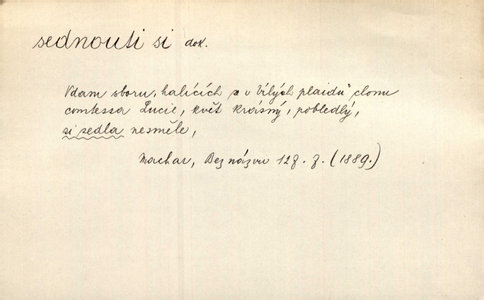 sednouti si dok.
Vdam sboru, halících se v bílých plaidů clonu
comtessa Lucie, květ krásný, pobledlý,
si sedla nesměle,
Machar, Bez názvu 128. z. (1889.)